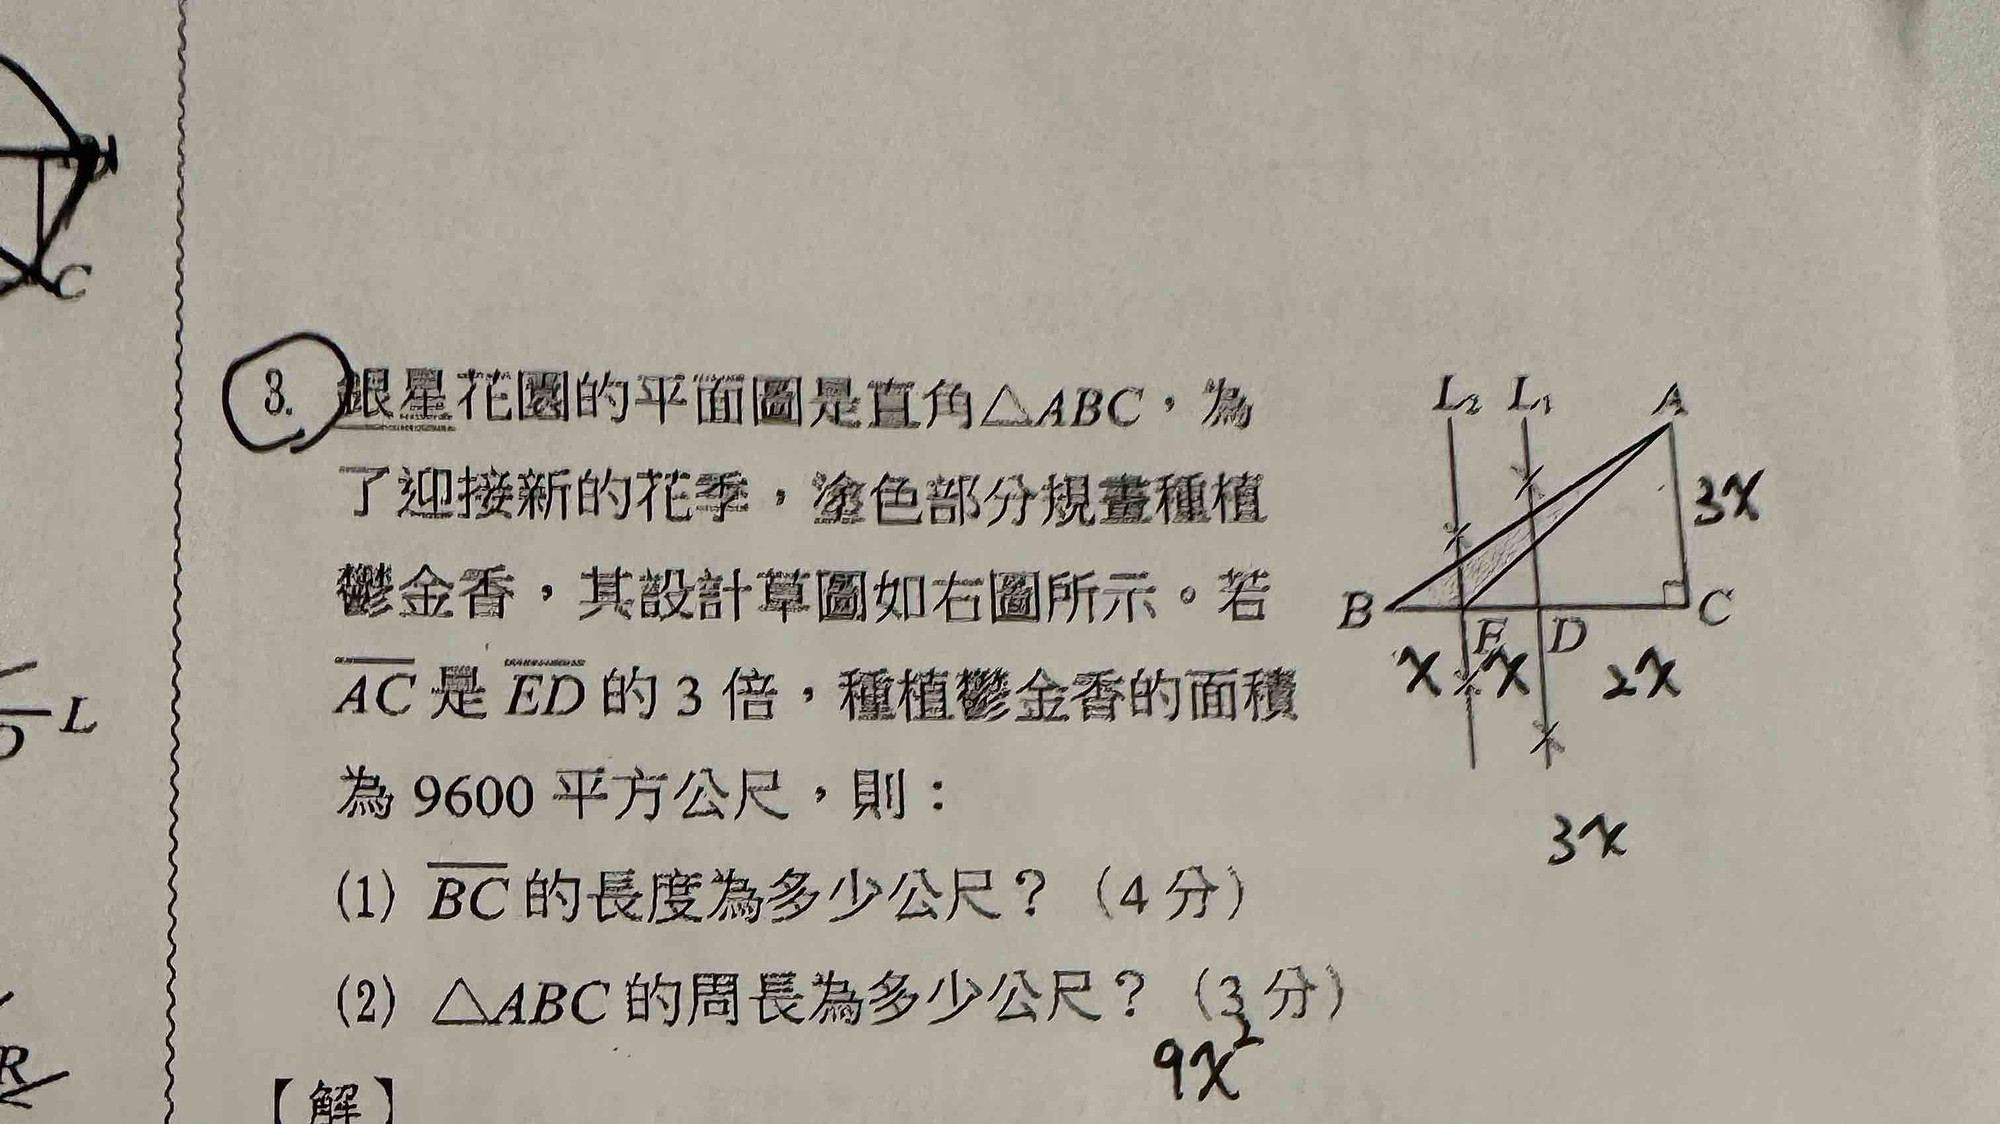 C
L
R
3. 銀星花園的平面圖是直角△ABC，為
了迎接新的花季，塗色部分規畫種植
鬱金香，其設計草圖如右圖所示。若
AC 是 ED 的 3 倍，種植鬱金香的面積
為 9600 平方公尺，則：
(1) BC 的長度為多少公尺？（4 分）
(2) △ABC 的周長為多少公尺？（3 分）
9x²
【解】
L₂ L₁ A
3x
B E D C
x x 2x
3x